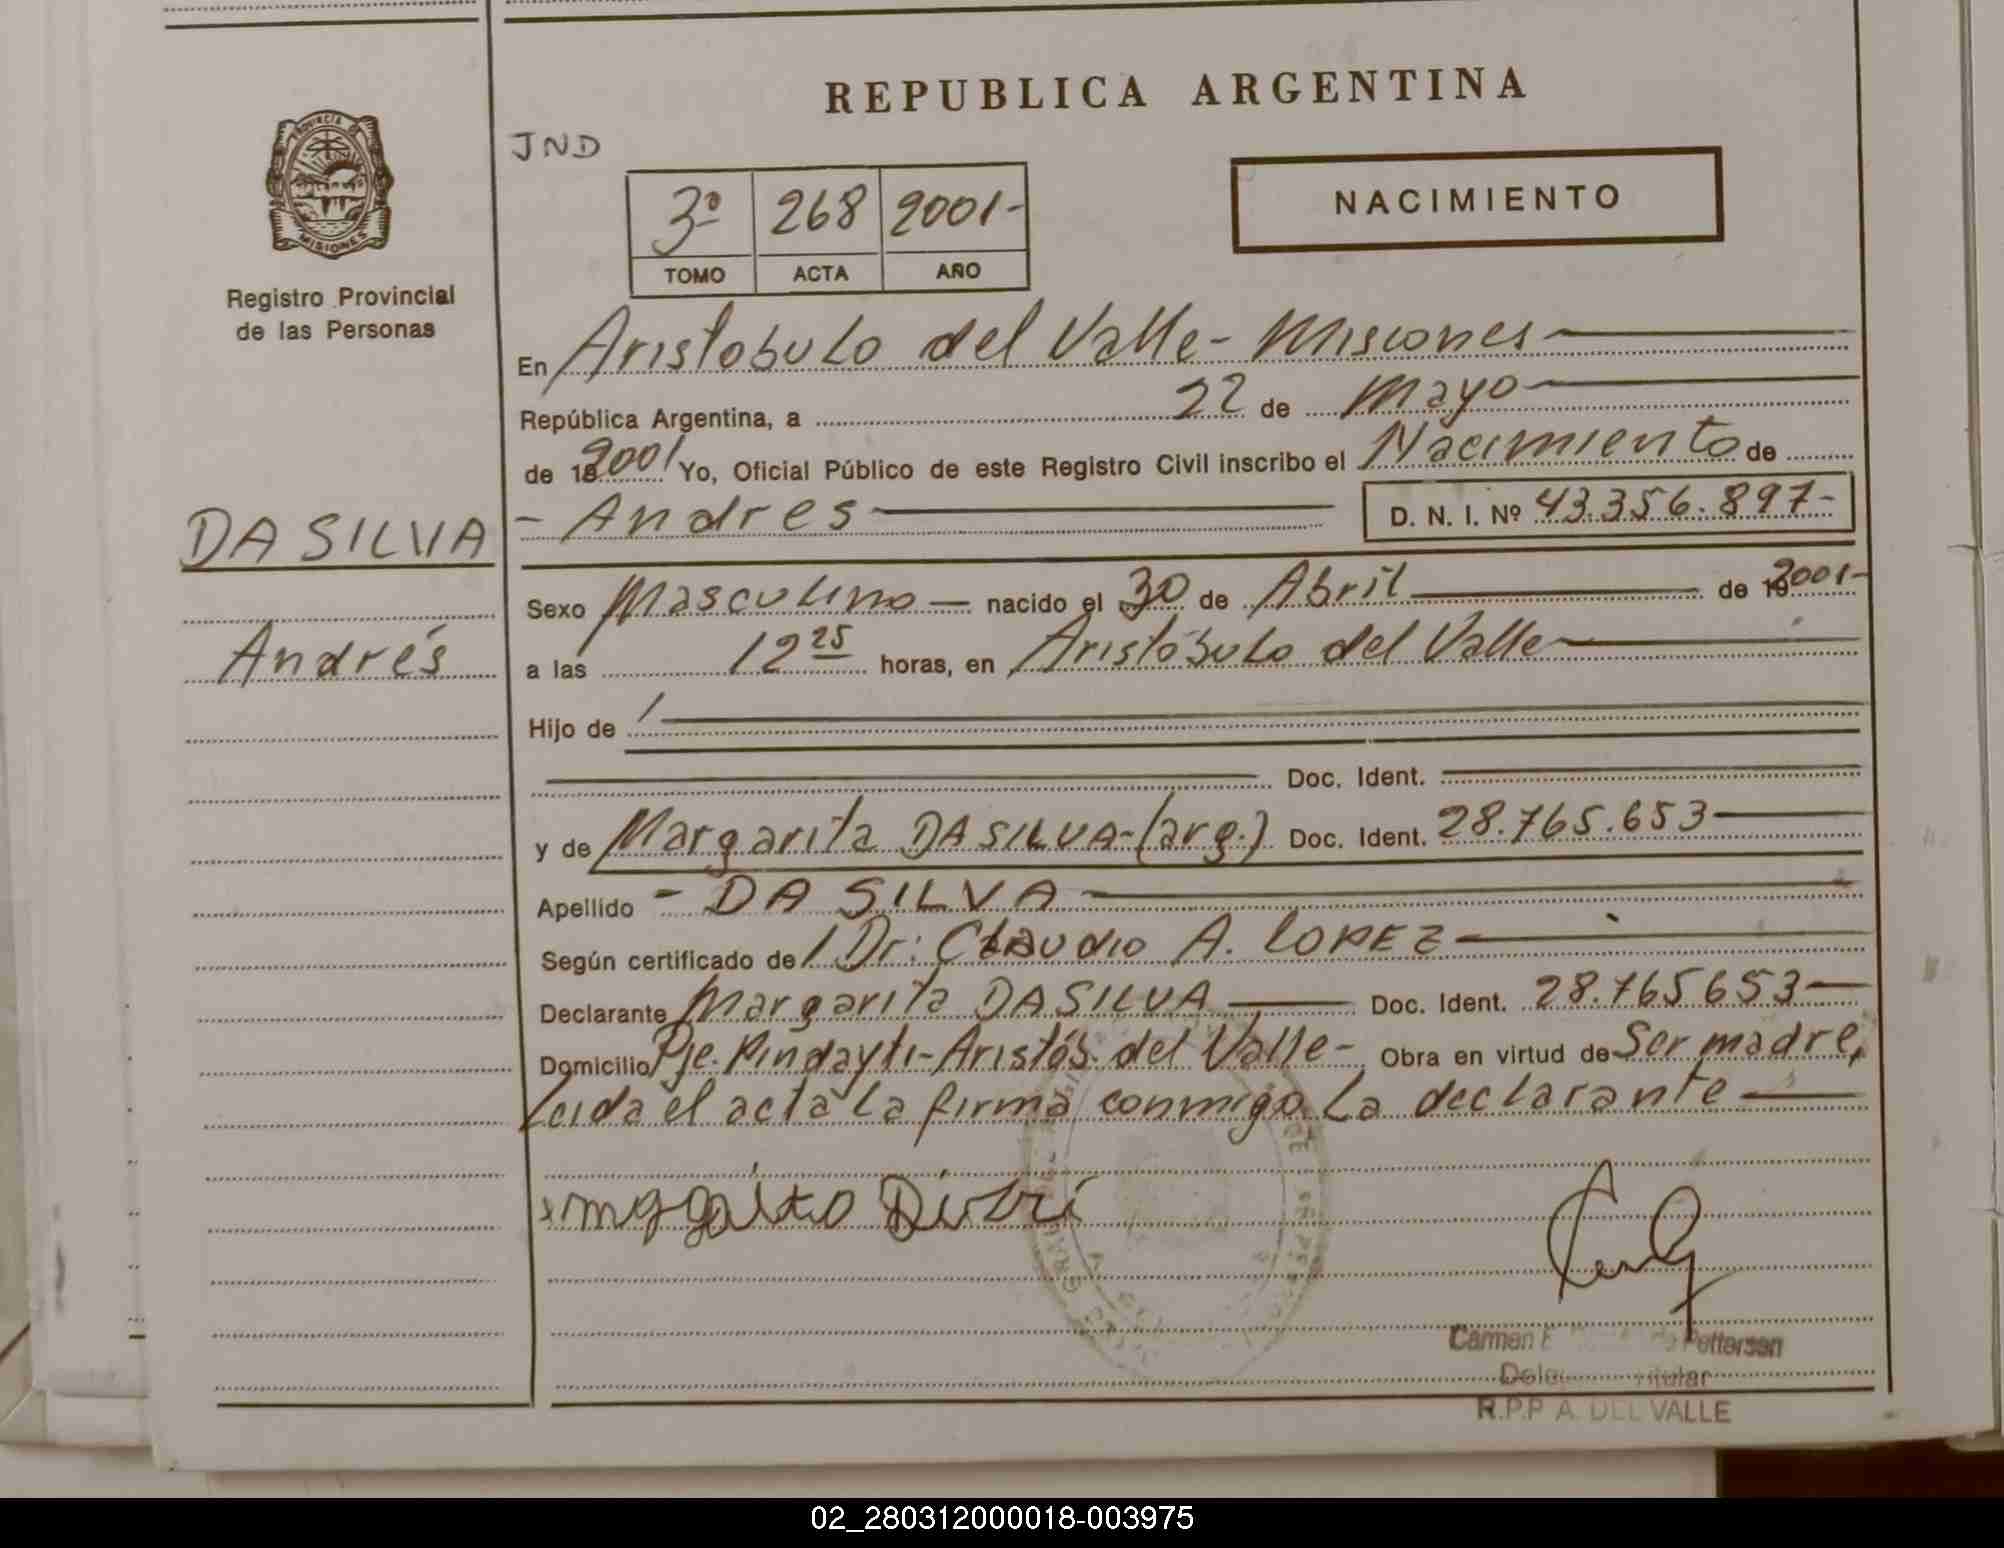 REPUBLICA ARGENTINA
JND
NACIMIENTO
3º 268 2001-
TOMO ACTA AÑO
PROVINCIA DE
MISIONES
Registro Provincial
de las Personas
En Aristobulo del Valle - Misiones
República Argentina, a 22 de Mayo
de 19 2001 Yo, Oficial Público de este Registro Civil inscribo el Nacimiento de
DA SILVA
- Andres D. N. I. Nº 43.356.897-
Sexo Masculino nacido el 30 de Abril de 19 2001-
Andrés
a las 12 25 horas, en Aristóbulo del Valle
Hijo de
Doc. Ident.
y de Margarita DA SILVA-(arg.) Doc. Ident. 28.765.653
Apellido - DA SILVA
Según certificado de Dr: Claudio A. LOPEZ
Declarante Margarita DA SILVA Doc. Ident. 28.765653
Domicilio Pje. Pindayti-Aristób. del Valle- Obra en virtud de Ser madre,
Leida el acta la firma conmigo La declarante
Carmen Pettersen
R.P.P A. DEL VALLE
02_280312000018-003975